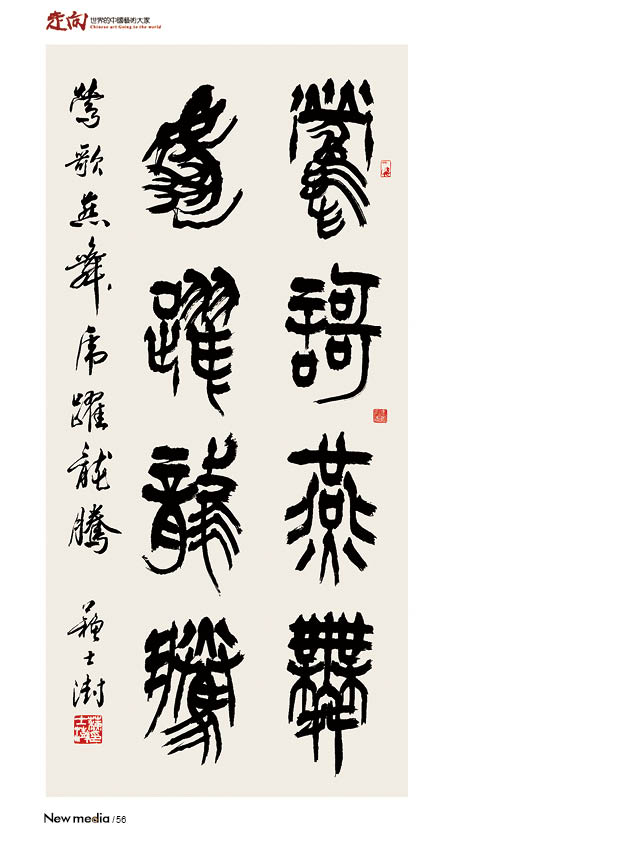 走向
世界的中國藝術大家
Chinese art Going to the world
鶯謌燕舞
虎躍龍騰
鶯歌燕舞虎躍龍騰
蘇士澍
New media / 56